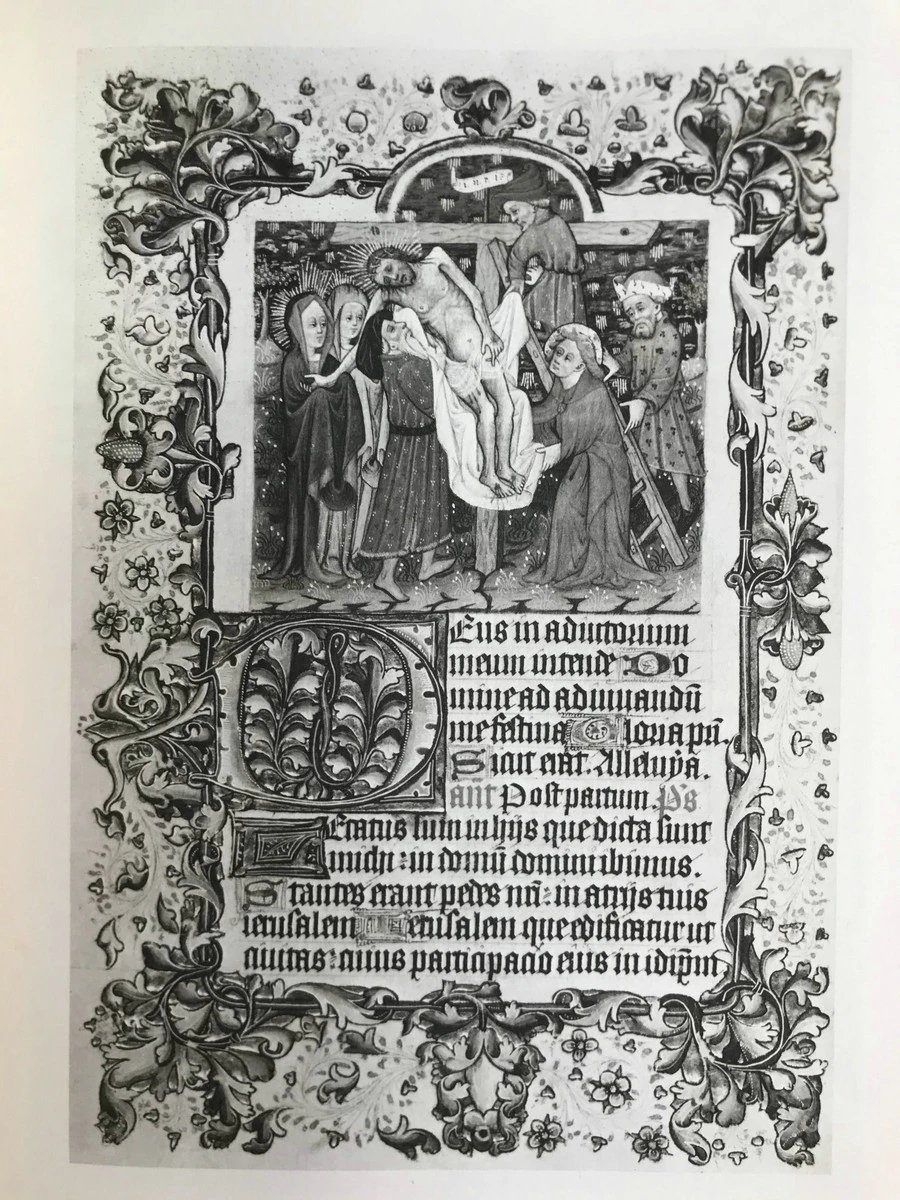 DEus in adiutorium
meum intende Do
mine ad adiuuandū
me festina Gloria pri.
Sicut erat. Alleluya.
ant Post partum. Ps
LEtatus sum in hijs que dicta sunt
michi : in domū domini ibimus.
Stantes erant pedes nri : in atrijs tuis
ierusalem Ierusalem que edificatur ut
ciuitas : cuius participacio eius in idipm